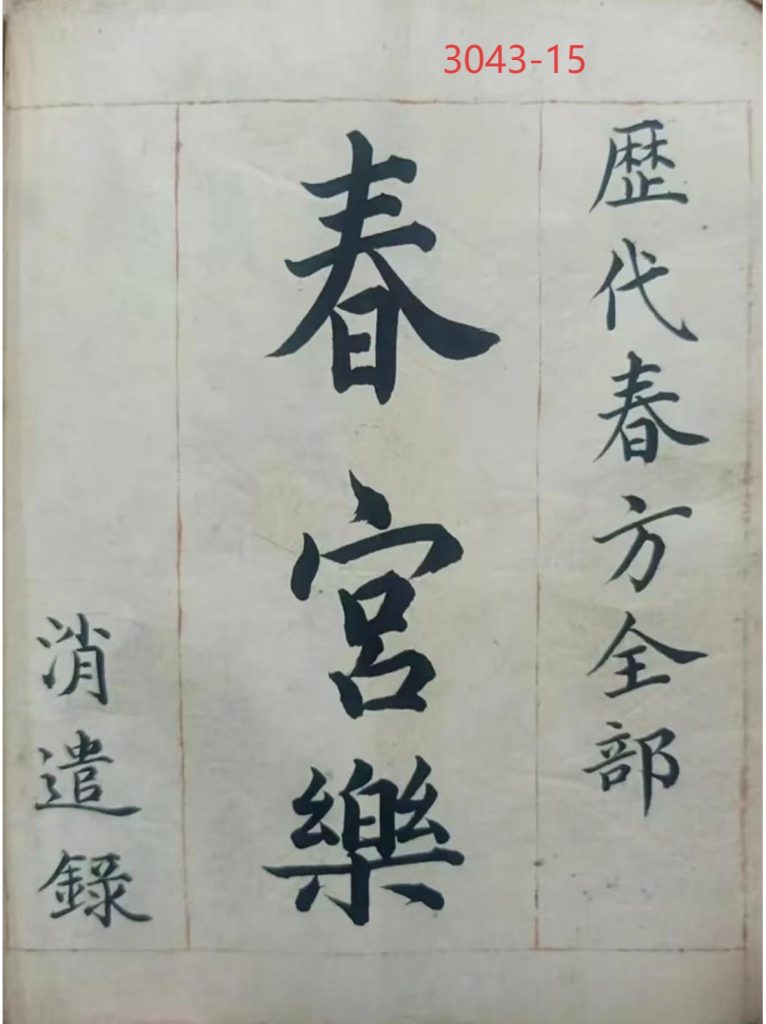 3043-15
歷代春方全部
春宮樂
消遣錄